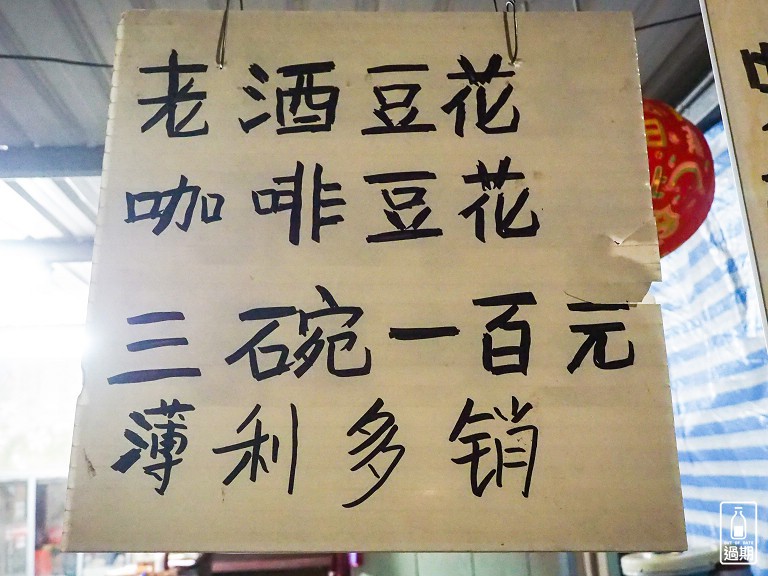 老酒豆花
咖啡豆花
三碗一百元
薄利多销
過期